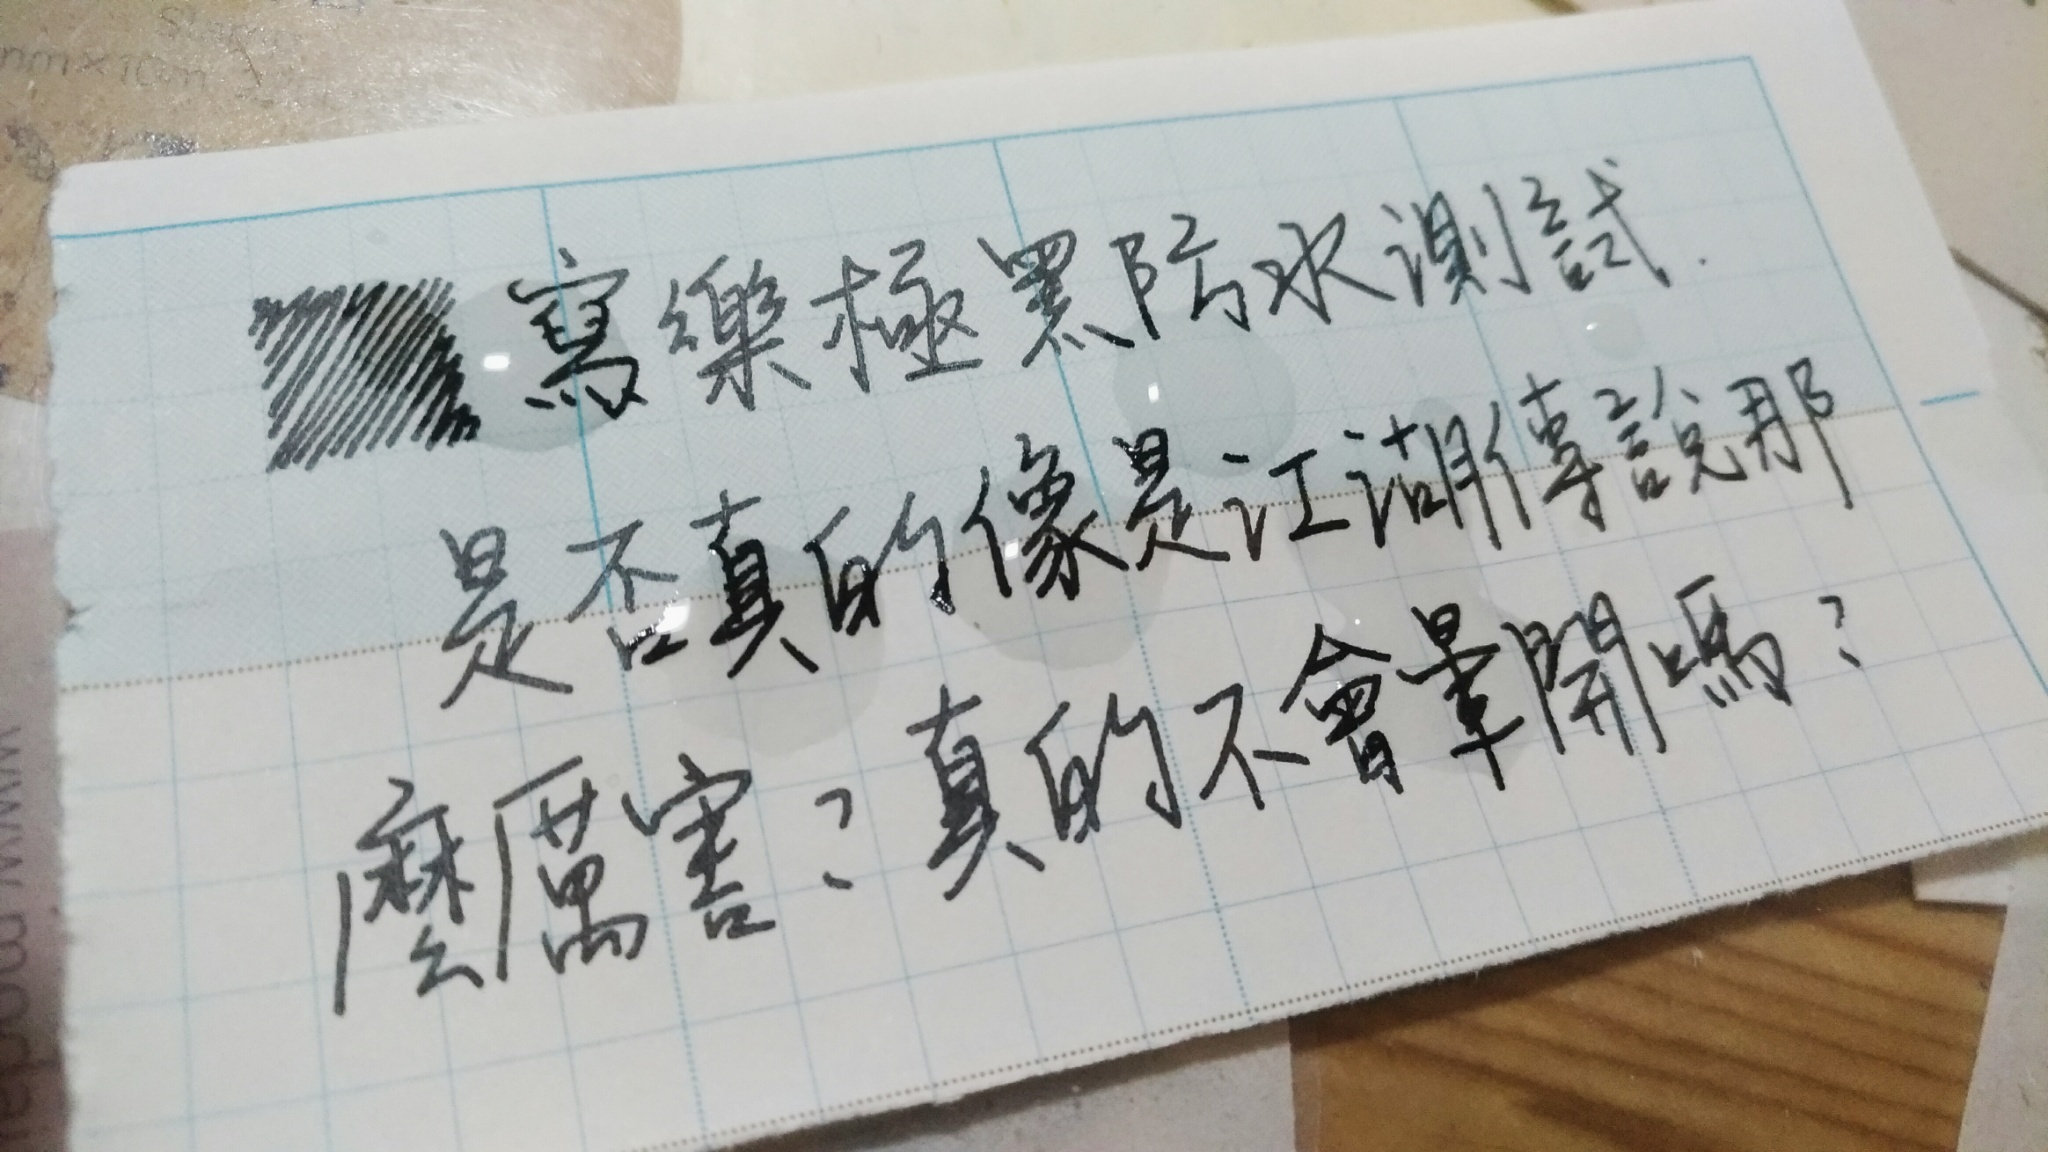 Stamp
mm×10m
寫樂極黑防水測試.
是否真的像是江湖傳說那
麼厲害?真的不會暈開嗎?